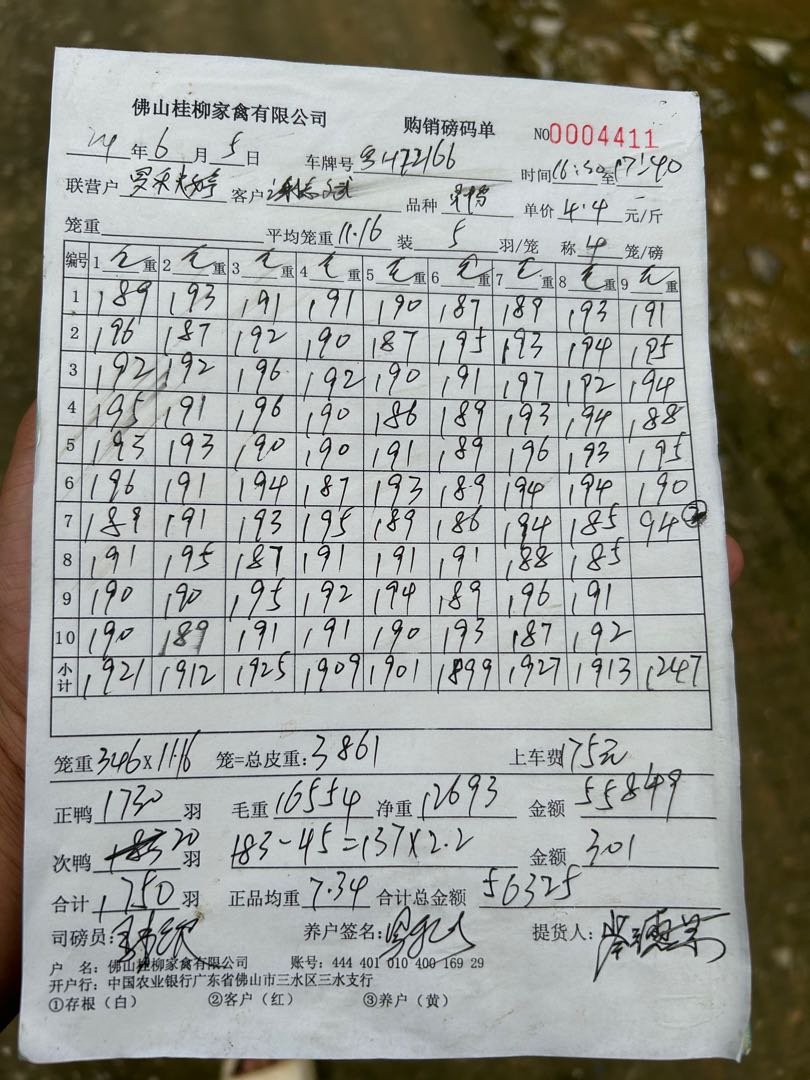 佛山桂柳家禽有限公司 购销磅码单 NO0004411
24年6月5日 车牌号 时间16:30至17:40
联营户 客户 品种 单价4.4元/斤
笼重 平均笼重11.16 装5羽/笼 称4笼/磅
编号 1毛重 2毛重 3毛重 4毛重 5毛重 6毛重 7毛重 8毛重 9毛重
1 189 193 191 191 190 187 189 193 191
2 196 187 192 190 187 195 193 194 195
3 192 192 196 192 190 191 197 192 194
4 195 191 196 190 186 189 193 194 188
5 193 193 190 190 191 189 196 193 195
6 196 191 194 187 193 189 194 194 190
7 189 191 193 195 189 186 194 185 94 ②
8 191 195 187 191 191 191 188 185
9 190 190 195 192 194 189 196 191
10 190 189 191 191 190 193 187 192
小计 1921 1912 1925 1909 1901 1899 1927 1913 1247
笼重346×11.16 笼=总皮重:3861 上车费175元
正鸭1730羽 毛重16554 净重12693 金额55849
次鸭20羽 183-45=137×2.2 金额301
合计1750羽 正品均重7.34 合计总金额56325
司磅员: 养户签名: 提货人:
户 名:佛山桂柳家禽有限公司 账号:444 401 010 400 169 29
开户行:中国农业银行广东省佛山市三水区三水支行
①存根(白) ②客户(红) ③养户(黄)